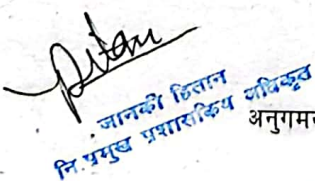 जानकी हितान
नि.प्रमुख प्रशासकिय अधिकृत
अनुगमन